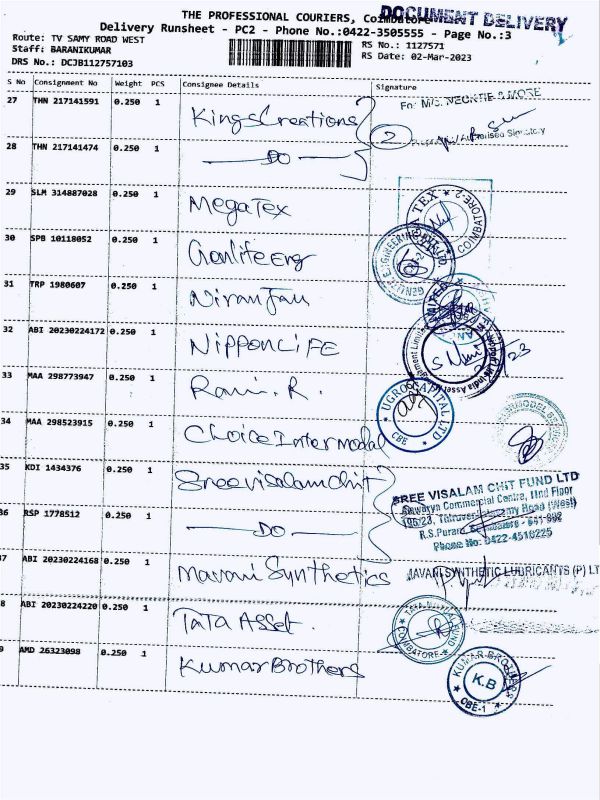 THE PROFESSIONAL COURIERS, Coimbatore
DOCUMENT DELIVERY
Delivery Runsheet - PC2 - Phone No.:0422-3505555 - Page No.:3
Route: TV SAMY ROAD WEST
RS No.: 1127571
Staff: BARANIKUMAR
RS Date: 02-Mar-2023
DRS No.: DCJB112757103
S No Consignment No Weight PCS Consignee Details Signature
27 THN 217141591 0.250 1 Kings Creations
2
28 THN 217141474 0.250 1 DO
29 SLM 314887028 0.250 1 MegaTex
TEX COIMBATORE-2
30 SPB 10118052 0.250 1 Genlifeeng
31 TRP 1980607 0.250 1 Niranjan
32 ABI 20230224172 0.250 1 NIPPON LIFE
33 MAA 298773947 0.250 1 Ravi. R.
UGRO CAPITAL LTD CBE
34 MAA 298523915 0.250 1 Choice Intermodal
35 KDI 1434376 0.250 1 Sree visalam chit
SREE VISALAM CHIT FUND LTD
Commercial Centre, IInd Floor
36 RSP 1778512 0.250 1 DO
Phone No: 0422-4518225
37 ABI 20230224168 0.250 1 Mavani Synthetics
SYNTHETIC LUBRICANTS (P) LT
38 ABI 20230224220 0.250 1 TATA Asset.
COIMBATORE
39 AMD 26323098 0.250 1 Kumar Brothers
KUMAR BROTHERS K.B CBE-1